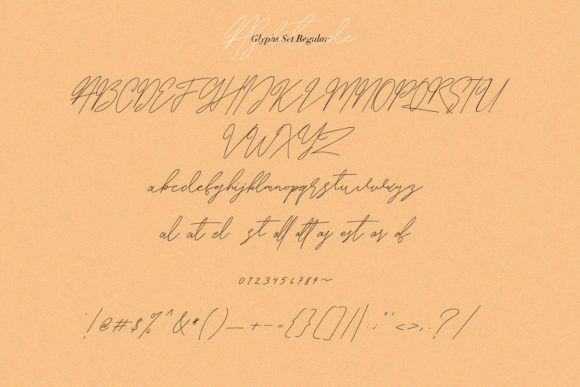 Glyphs Set Regular
ABCDEFGHIJKLMNOPQRSTU
VWXYZ
abcdefghijklmnopqrstuvwxyz
al at el st all att as est or of
0123456789~
!@#$%^&*()_+-={}[]||:;"'<>,.?/